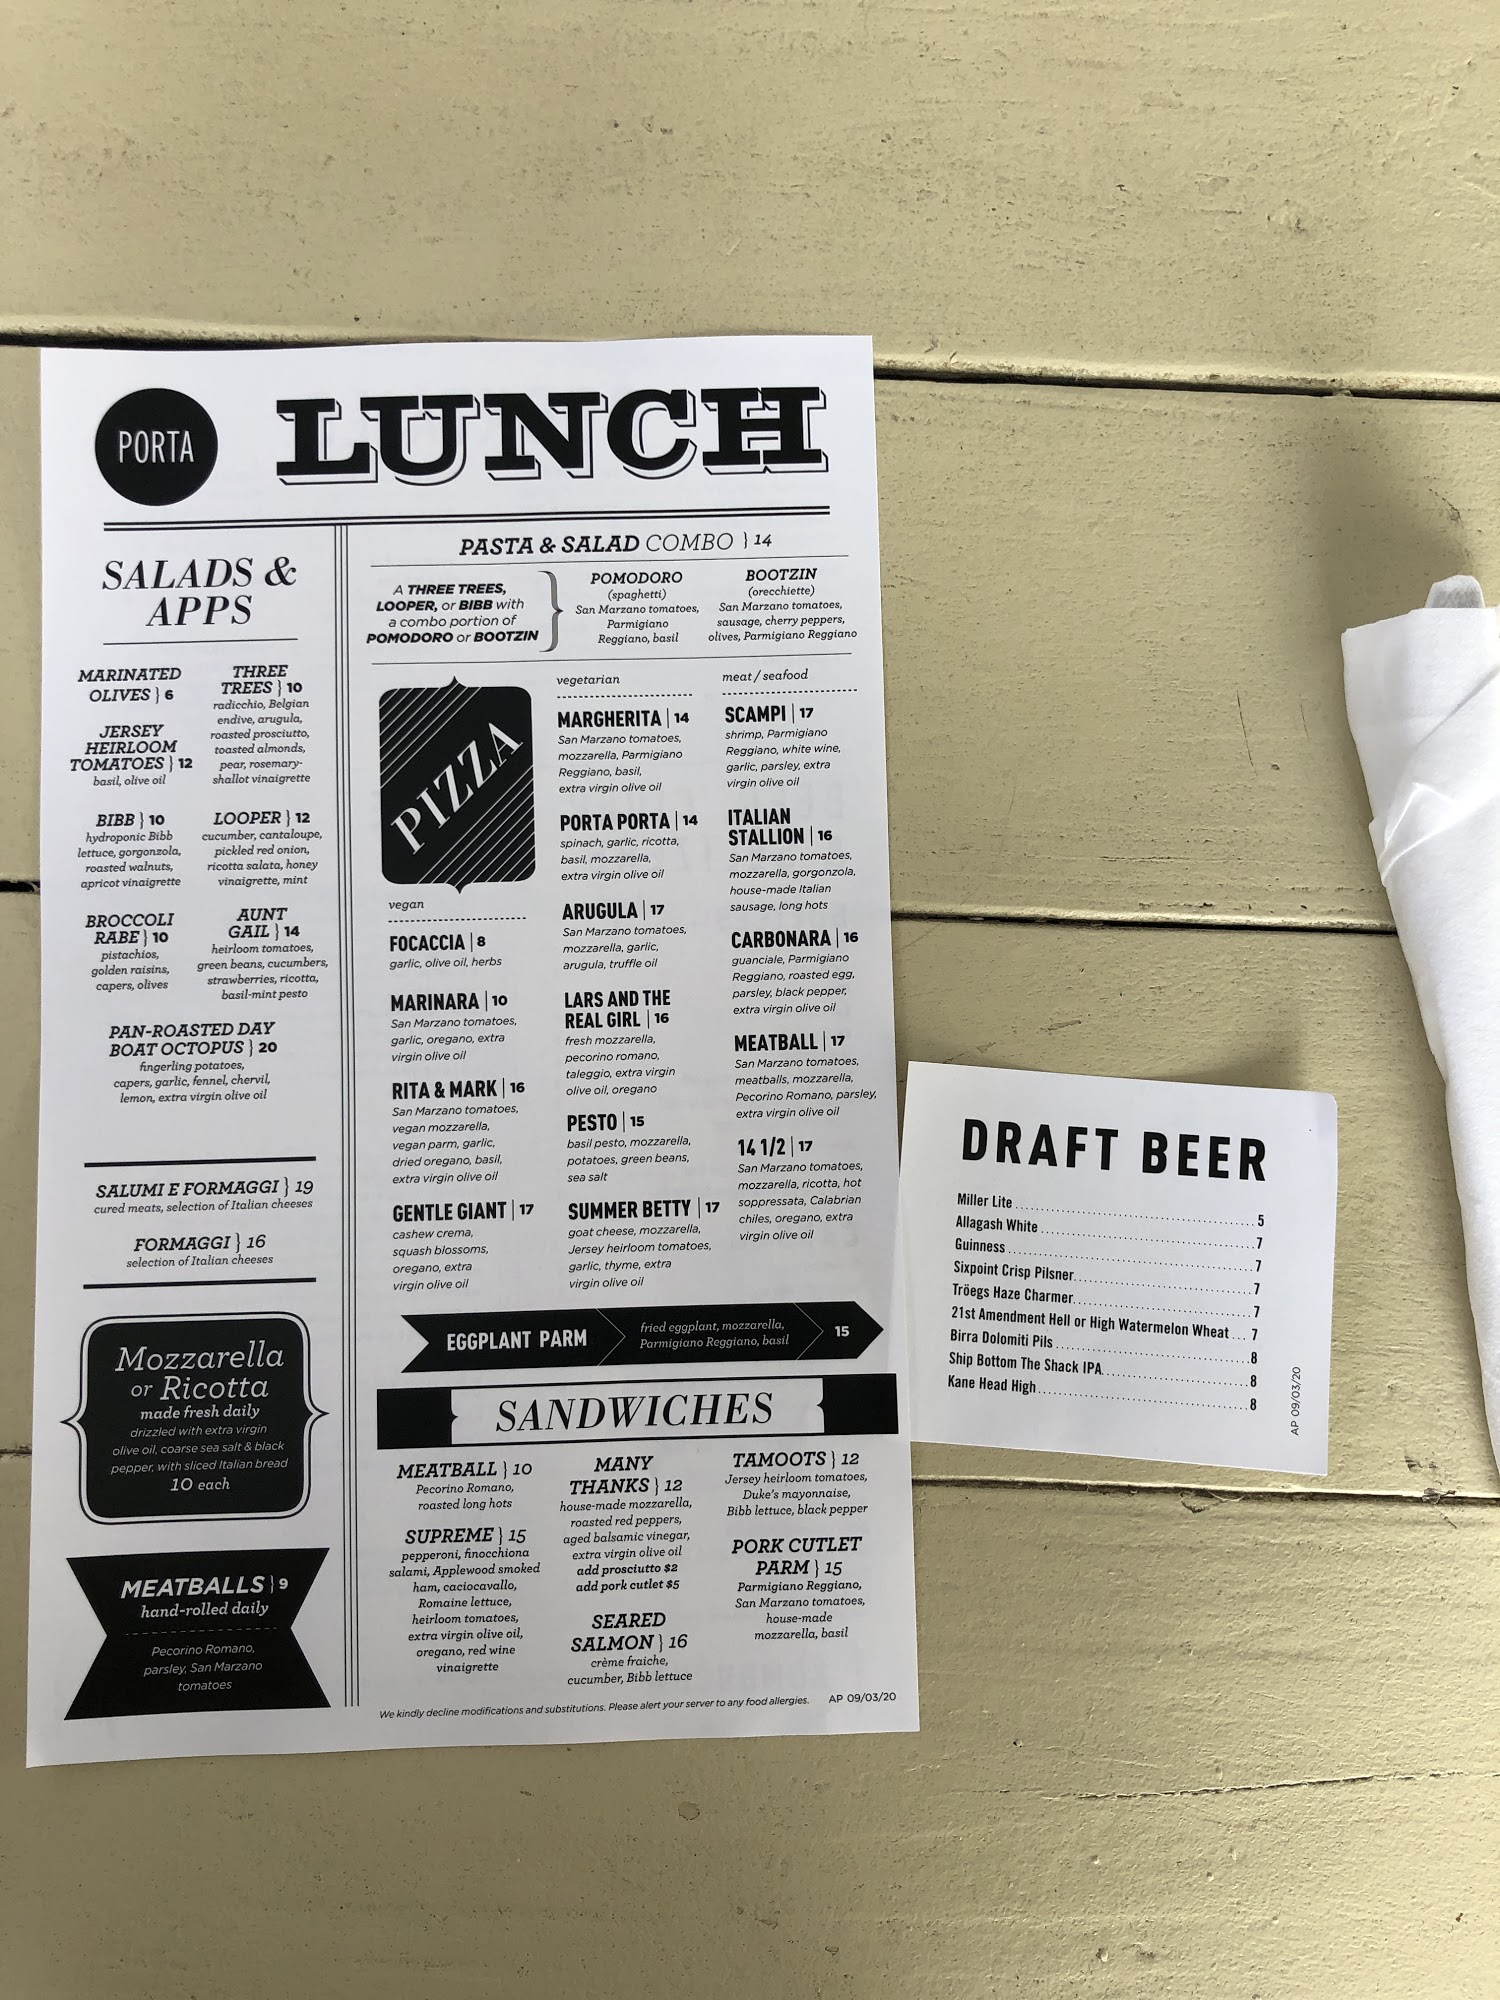 PORTA
LUNCH
SALADS &
APPS
MARINATED
OLIVES } 6
JERSEY
HEIRLOOM
TOMATOES } 12
basil, olive oil
BIBB } 10
hydroponic Bibb
lettuce, gorgonzola,
roasted walnuts,
apricot vinaigrette
BROCCOLI
RABE } 10
pistachios,
golden raisins,
capers, olives
THREE
TREES } 10
radicchio, Belgian
endive, arugula,
roasted prosciutto,
toasted almonds,
pear, rosemary-
shallot vinaigrette
LOOPER } 12
cucumber, cantaloupe,
pickled red onion,
ricotta salata, honey
vinaigrette, mint
AUNT
GAIL } 14
heirloom tomatoes,
green beans, cucumbers,
strawberries, ricotta,
basil-mint pesto
PAN-ROASTED DAY
BOAT OCTOPUS } 20
fingerling potatoes,
capers, garlic, fennel, chervil,
lemon, extra virgin olive oil
SALUMI E FORMAGGI } 19
cured meats, selection of Italian cheeses
FORMAGGI } 16
selection of Italian cheeses
Mozzarella
or Ricotta
made fresh daily
drizzled with extra virgin
olive oil, coarse sea salt & black
pepper, with sliced Italian bread
10 each
MEATBALLS } 9
hand-rolled daily
Pecorino Romano,
parsley, San Marzano
tomatoes
PASTA & SALAD COMBO } 14
A THREE TREES,
LOOPER, or BIBB with
a combo portion of
POMODORO or BOOTZIN
POMODORO
(spaghetti)
San Marzano tomatoes,
Parmigiano
Reggiano, basil
BOOTZIN
(orecchiette)
San Marzano tomatoes,
sausage, cherry peppers,
olives, Parmigiano Reggiano
PIZZA
vegan
FOCACCIA | 8
garlic, olive oil, herbs
MARINARA | 10
San Marzano tomatoes,
garlic, oregano, extra
virgin olive oil
RITA & MARK | 16
San Marzano tomatoes,
vegan mozzarella,
vegan parm, garlic,
dried oregano, basil,
extra virgin olive oil
GENTLE GIANT | 17
cashew crema,
squash blossoms,
oregano, extra
virgin olive oil
vegetarian
MARGHERITA | 14
San Marzano tomatoes,
mozzarella, Parmigiano
Reggiano, basil,
extra virgin olive oil
PORTA PORTA | 14
spinach, garlic, ricotta,
basil, mozzarella,
extra virgin olive oil
ARUGULA | 17
San Marzano tomatoes,
mozzarella, garlic,
arugula, truffle oil
LARS AND THE
REAL GIRL | 16
fresh mozzarella,
pecorino romano,
taleggio, extra virgin
olive oil, oregano
PESTO | 15
basil pesto, mozzarella,
potatoes, green beans,
sea salt
SUMMER BETTY | 17
goat cheese, mozzarella,
Jersey heirloom tomatoes,
garlic, thyme, extra
virgin olive oil
meat / seafood
SCAMPI | 17
shrimp, Parmigiano
Reggiano, white wine,
garlic, parsley, extra
virgin olive oil
ITALIAN
STALLION | 16
San Marzano tomatoes,
mozzarella, gorgonzola,
house-made Italian
sausage, long hots
CARBONARA | 16
guanciale, Parmigiano
Reggiano, roasted egg,
parsley, black pepper,
extra virgin olive oil
MEATBALL | 17
San Marzano tomatoes,
meatballs, mozzarella,
Pecorino Romano, parsley,
extra virgin olive oil
14 1/2 | 17
San Marzano tomatoes,
mozzarella, ricotta, hot
soppressata, Calabrian
chiles, oregano, extra
virgin olive oil
EGGPLANT PARM
fried eggplant, mozzarella,
Parmigiano Reggiano, basil
15
SANDWICHES
MEATBALL } 10
Pecorino Romano,
roasted long hots
SUPREME } 15
pepperoni, finocchiona
salami, Applewood smoked
ham, caciocavallo,
Romaine lettuce,
heirloom tomatoes,
extra virgin olive oil,
oregano, red wine
vinaigrette
MANY
THANKS } 12
house-made mozzarella,
roasted red peppers,
aged balsamic vinegar,
extra virgin olive oil
add prosciutto $2
add pork cutlet $5
SEARED
SALMON } 16
crème fraiche,
cucumber, Bibb lettuce
TAMOOTS } 12
Jersey heirloom tomatoes,
Duke's mayonnaise,
Bibb lettuce, black pepper
PORK CUTLET
PARM } 15
Parmigiano Reggiano,
San Marzano tomatoes,
house-made
mozzarella, basil
We kindly decline modifications and substitutions. Please alert your server to any food allergies. AP 09/03/20
DRAFT BEER
Miller Lite 5
Allagash White 7
Guinness 7
Sixpoint Crisp Pilsner 7
Tröegs Haze Charmer 7
21st Amendment Hell or High Watermelon Wheat 7
Birra Dolomiti Pils 8
Ship Bottom The Shack IPA 8
Kane Head High 8
AP 09/03/20